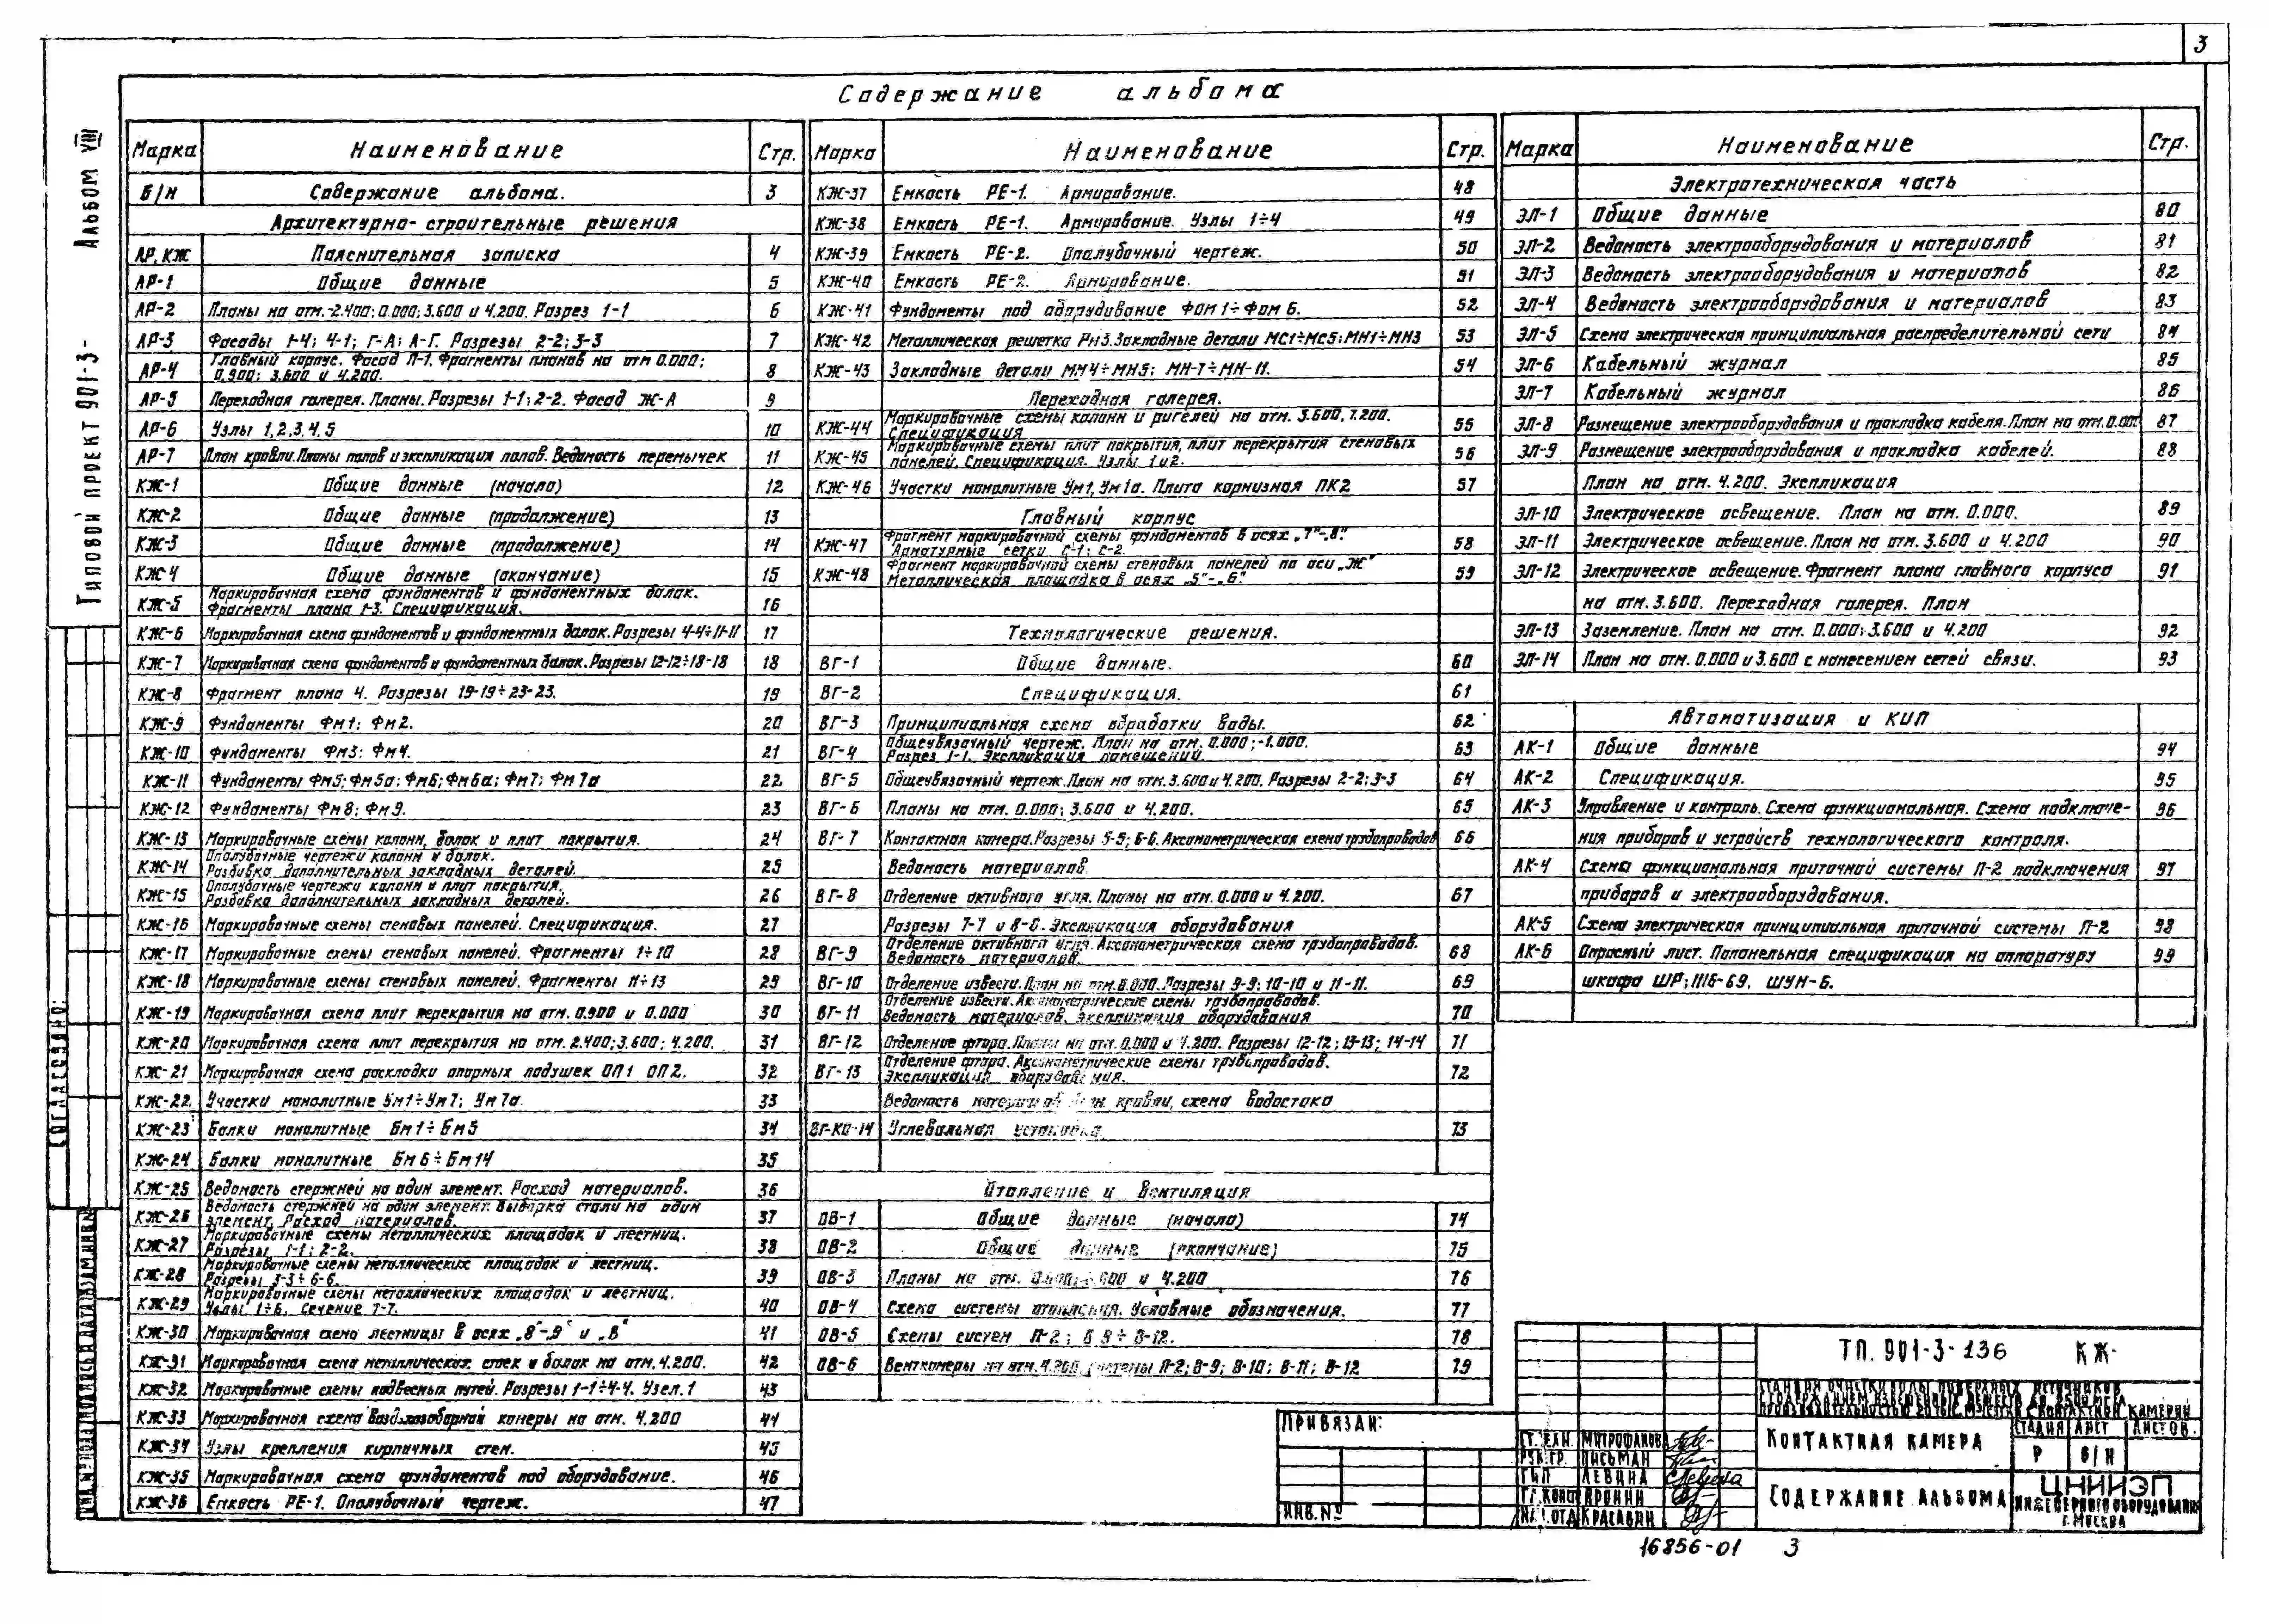 3
Содержание альбома
Альбом VIII
Типовой проект 901-3-
Марка Наименование Стр.
Б/Н Содержание альбома. 3
Архитектурно-строительные решения
АР, КЖ Пояснительная записка 4
АР-1 Общие данные 5
АР-2 Планы на отм.-2.400; 0.000; 3.600 и 4.200. Разрез 1-1 6
АР-3 Фасады 1-4; 4-1; Г-А; А-Г. Разрезы 2-2; 3-3 7
АР-4 Главный корпус. Фасад Л-1. Фрагменты планов на отм 0.000;
0.900; 3.600 и 4.200. 8
АР-5 Переходная галерея. Планы. Разрезы 1-1; 2-2. Фасад Ж-А 9
АР-6 Узлы 1,2,3,4,5 10
АР-7 План кровли. Планы полов и экспликация полов. Ведомость перемычек 11
КЖ-1 Общие данные (начало) 12
КЖ-2 Общие данные (продолжение) 13
КЖ-3 Общие данные (продолжение) 14
КЖ-4 Общие данные (окончание) 15
КЖ-5 Маркировочная схема фундаментов и фундаментных балок.
Фрагменты плана 1-3. Спецификация. 16
КЖ-6 Маркировочная схема фундаментов и фундаментных балок. Разрезы 4-4÷11-11 17
КЖ-7 Маркировочная схема фундаментов и фундаментных балок. Разрезы 12-12÷18-18 18
КЖ-8 Фрагмент плана 4. Разрезы 19-19÷23-23. 19
КЖ-9 Фундаменты Фм1; Фм2. 20
КЖ-10 Фундаменты Фм3; Фм4. 21
КЖ-11 Фундаменты Фм5; Фм5а; Фм6; Фм6а; Фм7; Фм7а 22
КЖ-12 Фундаменты Фм8; Фм9. 23
КЖ-13 Маркировочные схемы колонн, балок и плит покрытия. 24
КЖ-14 Опалубочные чертежи колонн и балок.
Разбивка дополнительных закладных деталей. 25
КЖ-15 Опалубочные чертежи колонн и плит покрытия.
Разбивка дополнительных закладных деталей. 26
КЖ-16 Маркировочные схемы стеновых панелей. Спецификация. 27
КЖ-17 Маркировочные схемы стеновых панелей. Фрагменты 1÷10 28
КЖ-18 Маркировочные схемы стеновых панелей. Фрагменты 11÷13 29
КЖ-19 Маркировочная схема плит перекрытия на отм. 0.900 и 0.000 30
КЖ-20 Маркировочная схема плит перекрытия на отм. 2.400; 3.600; 4.200. 31
КЖ-21 Маркировочная схема раскладки опорных подушек ОП1 ОП2. 32
КЖ-22 Участки монолитные Ум1÷Ум7; Ум7а. 33
КЖ-23 Балки монолитные Бм1÷Бм5 34
КЖ-24 Балки монолитные Бм6÷Бм14 35
КЖ-25 Ведомость стержней на один элемент. Расход материалов. 36
КЖ-26 Ведомость стержней на один элемент. Выборка стали на один
элемент. Расход материалов. 37
КЖ-27 Маркировочные схемы металлических площадок и лестниц.
Разрезы 1-1; 2-2. 38
КЖ-28 Маркировочные схемы металлических площадок и лестниц.
Разрезы 3-3÷6-6. 39
КЖ-29 Маркировочные схемы металлических площадок и лестниц.
Узлы 1÷6. Сечение 7-7. 40
КЖ-30 Маркировочная схема лестницы в осях „8"-„9" и „В" 41
КЖ-31 Маркировочная схема металлических стоек и балок на отм. 4.200. 42
КЖ-32 Маркировочные схемы подвесных путей. Разрезы 1-1÷4-4. Узел. 1 43
КЖ-33 Маркировочная схема воздухозаборной камеры на отм. 4.200 44
КЖ-34 Узлы крепления кирпичных стен. 45
КЖ-35 Маркировочная схема фундаментов под оборудование. 46
КЖ-36 Емкость РЕ-1. Опалубочный чертеж. 47
Марка Наименование Стр.
КЖ-37 Емкость РЕ-1. Армирование. 48
КЖ-38 Емкость РЕ-1. Армирование. Узлы 1÷4 49
КЖ-39 Емкость РЕ-2. Опалубочный чертеж. 50
КЖ-40 Емкость РЕ-2. Армирование. 51
КЖ-41 Фундаменты под оборудование ФОМ1÷ФОМ6. 52
КЖ-42 Металлическая решетка Рм3. Закладные детали МС1÷МС5; МН1÷МН3 53
КЖ-43 Закладные детали МН4÷МН5; МН-7÷МН-11. 54
Переходная галерея.
КЖ-44 Маркировочные схемы колонн и ригелей на отм. 3.600, 7.200.
Спецификация 55
КЖ-45 Маркировочные схемы плит покрытия, плит перекрытия стеновых
панелей. Спецификация. Узлы 1 и 2. 56
КЖ-46 Участки монолитные Ум1, Ум1а. Плита карнизная ПК2 57
Главный корпус
КЖ-47 Фрагмент маркировочной схемы фундаментов в осях „7"-„8".
Арматурные сетки С-1; С-2. 58
КЖ-48 Фрагмент маркировочной схемы стеновых панелей по оси „Ж"
Металлическая площадка в осях „5"-„6". 59
Технологические решения.
ВГ-1 Общие данные. 60
ВГ-2 Спецификация. 61
ВГ-3 Принципиальная схема обработки воды. 62
ВГ-4 Общеувязочный чертеж. План на отм. 0.000; -1.000.
Разрез 1-1. Экспликация помещений. 63
ВГ-5 Общеувязочный чертеж. План на отм. 3.600 и 4.200. Разрезы 2-2; 3-3 64
ВГ-6 Планы на отм. 0.000; 3.600 и 4.200. 65
ВГ-7 Контактная камера. Разрезы 5-5; 6-6. Аксонометрическая схема трубопроводов 66
Ведомость материалов
ВГ-8 Отделение активного угля. Планы на отм. 0.000 и 4.200. 67
Разрезы 7-7 и 8-8. Экспликация оборудования
ВГ-9 Отделение активного угля. Аксонометрическая схема трубопроводов.
Ведомость материалов. 68
ВГ-10 Отделение извести. План на отм. 0.000. Разрезы 9-9; 10-10 и 11-11. 69
ВГ-11 Отделение извести. Аксонометрические схемы трубопроводов.
Ведомость материалов. Экспликация оборудования 70
ВГ-12 Отделение фтора. Планы на отм. 0.000 и 4.200. Разрезы 12-12; 13-13; 14-14 71
ВГ-13 Отделение фтора. Аксонометрические схемы трубопроводов.
Экспликация оборудования. 72
Ведомость материалов кровли, схема водостока
ВГ-КО-14 Углевальная установка. 73
Отопление и вентиляция
ОВ-1 Общие данные (начало) 74
ОВ-2 Общие данные (окончание) 75
ОВ-3 Планы на отм. 0.000; 3.600 и 4.200 76
ОВ-4 Схема системы отопления. Условные обозначения. 77
ОВ-5 Схемы систем П-2; В 8÷В-12. 78
ОВ-6 Венткамеры на отм. 4.200. Системы П-2; В-9; В-10; В-11; В-12 79
Марка Наименование Стр.
Электротехническая часть
ЭЛ-1 Общие данные 80
ЭЛ-2 Ведомость электрооборудования и материалов 81
ЭЛ-3 Ведомость электрооборудования и материалов 82
ЭЛ-4 Ведомость электрооборудования и материалов 83
ЭЛ-5 Схема электрическая принципиальная распределительной сети 84
ЭЛ-6 Кабельный журнал 85
ЭЛ-7 Кабельный журнал 86
ЭЛ-8 Размещение электрооборудования и прокладка кабеля. План на отм. 0.000 87
ЭЛ-9 Размещение электрооборудования и прокладка кабелей. 88
План на отм. 4.200. Экспликация
ЭЛ-10 Электрическое освещение. План на отм. 0.000. 89
ЭЛ-11 Электрическое освещение. План на отм. 3.600 и 4.200 90
ЭЛ-12 Электрическое освещение. Фрагмент плана главного корпуса 91
на отм. 3.600. Переходная галерея. План
ЭЛ-13 Заземление. План на отм. 0.000; 3.600 и 4.200 92
ЭЛ-14 План на отм. 0.000 и 3.600 с нанесением сетей связи. 93
Автоматизация и КИП
АК-1 Общие данные 94
АК-2 Спецификация. 95
АК-3 Управление и контроль. Схема функциональная. Схема подключе- 96
ния приборов и устройств технологического контроля.
АК-4 Схема функциональная приточной системы П-2 подключения 97
приборов и электрооборудования.
АК-5 Схема электрическая принципиальная приточной системы П-2 98
АК-6 Опросный лист. Попанельная спецификация на аппаратуру 99
шкафа ШР; 11/6-69, ШУН-6.
СОГЛАСОВАНО:
Привязан:
ИНВ. №
ТП. 901-3-136 КЖ-
Станция очистки воды поверхных источников
с содержанием взвешенных веществ до 2500 мг/л
производительностью 20 тыс. м³/сутки с контактной камерой
Гл. техн. Митрофанова
Рук. гр. Письман
ГИП Левина
Гл. конс Аронин
Нач. отд Красавин
Контактная камера
Стадия Лист Листов.
Р Б/Н
Содержание альбома
ЦНИИЭП
инженерного оборудования
г. Москва
16856-01 3